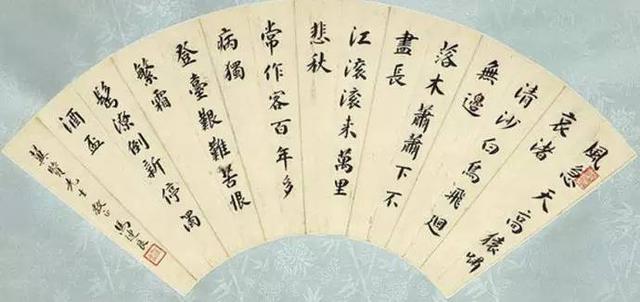 風急
天高猿嘯
哀渚
清沙白鳥飛迴
無邊
落木蕭蕭下不
盡長
江滚滚来萬里
悲秋
常作客百年多
病獨
登臺艱難苦恨
繁霜
鬢潦倒新停濁
酒盃
賢先生教正 馬連良